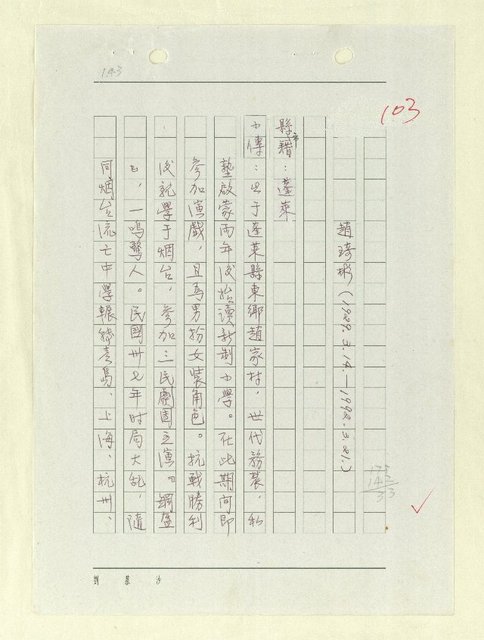 143
103
趙琦彬(1929.3.14.—1992.3.21.)
縣市籍:蓬萊
小傳:出于蓬萊縣東鄉趙家村,世代務農,私
塾啟蒙兩年後始讀新制小學。在此期间即
參加演戲,且為男扮女裝角色。抗戰勝利
後就學于烟台,參加三民劇團主演「鋼盔
」,一鳴驚人。民國卅七年时局大乱,隨
同烟台流亡中學輾轉青島、上海、杭州、
175
142
33